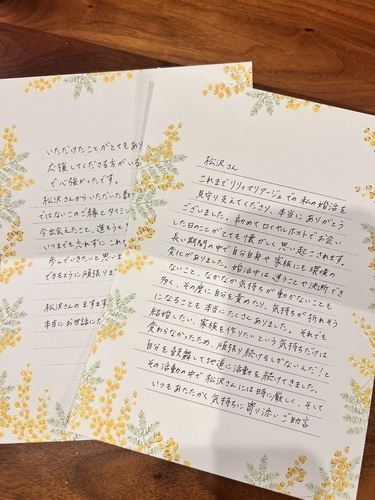 松沢さん
これまでリリィマリアージュでの私の婚活を
見守り支えてくださり、本当にありがとう
ございました。初めてロイヤルホストでお会い
した日のことがとても懐かしく思い起こされます。
長い期間の中で自分自身や家族にも環境の
変化がありました。婚活中は迷うことや決断でき
ないこと、なかなか気持ちが動かないことも
多く、その度に自分を責めたり、気持ちが折れそう
になることも本当にたくさんありました。それでも
結婚したい、家族を作りたいという気持ちだけは
変わらなかったため、頑張り続けるしかないんだ!と
自分を鼓舞して地道に活動を続けてきました。
その活動の中で松沢さんには時に厳しく、そして
いつもあたたかく気持ちに寄り添いご助言
いただけたことがとてもあり
応援してくださる方がいる
で心強かったです。
松沢さんからいただいた
ではないこのご縁とタイミン
今出会えたこと、
いつまでも忘れずにこれ
歩んでいきたいと思いま
できるように頑張りま
松沢さんのますます
本当にお世話に